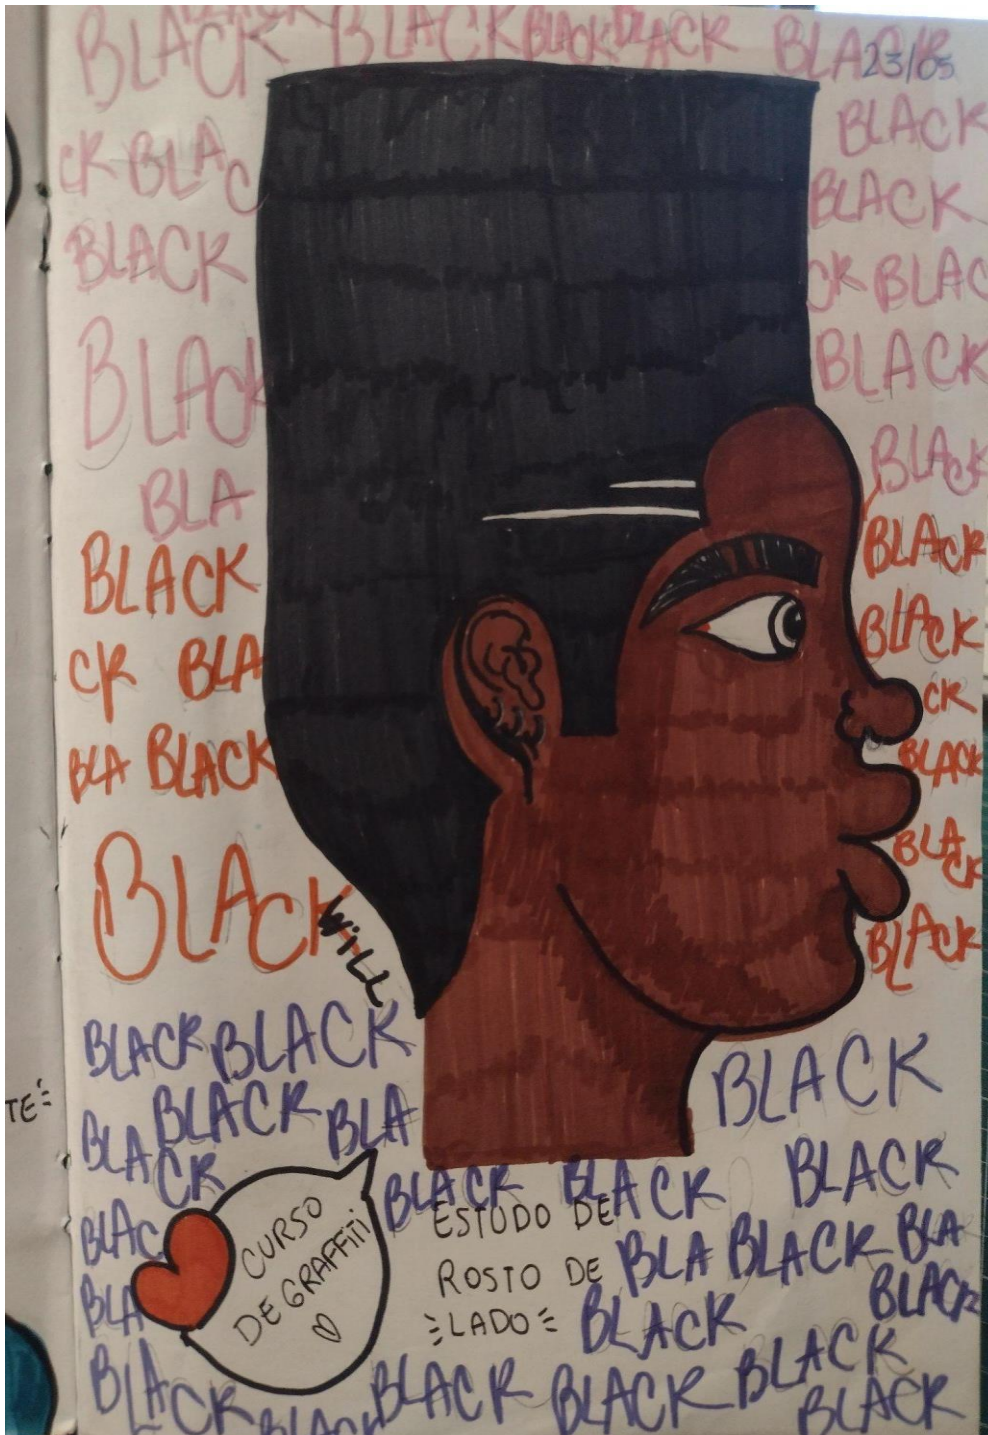 BLACK BLACK BLACK BLACK BLACK BLACK
23/05
BLACK
CK BLAC
BLACK
BLACK
CK BLAC
BLACK
BLACK
BLACK
BLA
BLACK
BLACK
BLACK
CK BLA
BLACK
CK
BLA BLACK
BLACK
BLACK
BLACK
WILL
BLACK
BLACK BLACK
BLACK
TE
BLACK BLA
BLACK
BLACK BLACK BLACK
CURSO
DE GRAFFITI
ESTUDO DE
ROSTO DE
LADO
BLAC
BLA BLACK BLA
BLA
BLACK
BLACK
BLACK
BLACK BLACK BLACK
BLACK BLACK